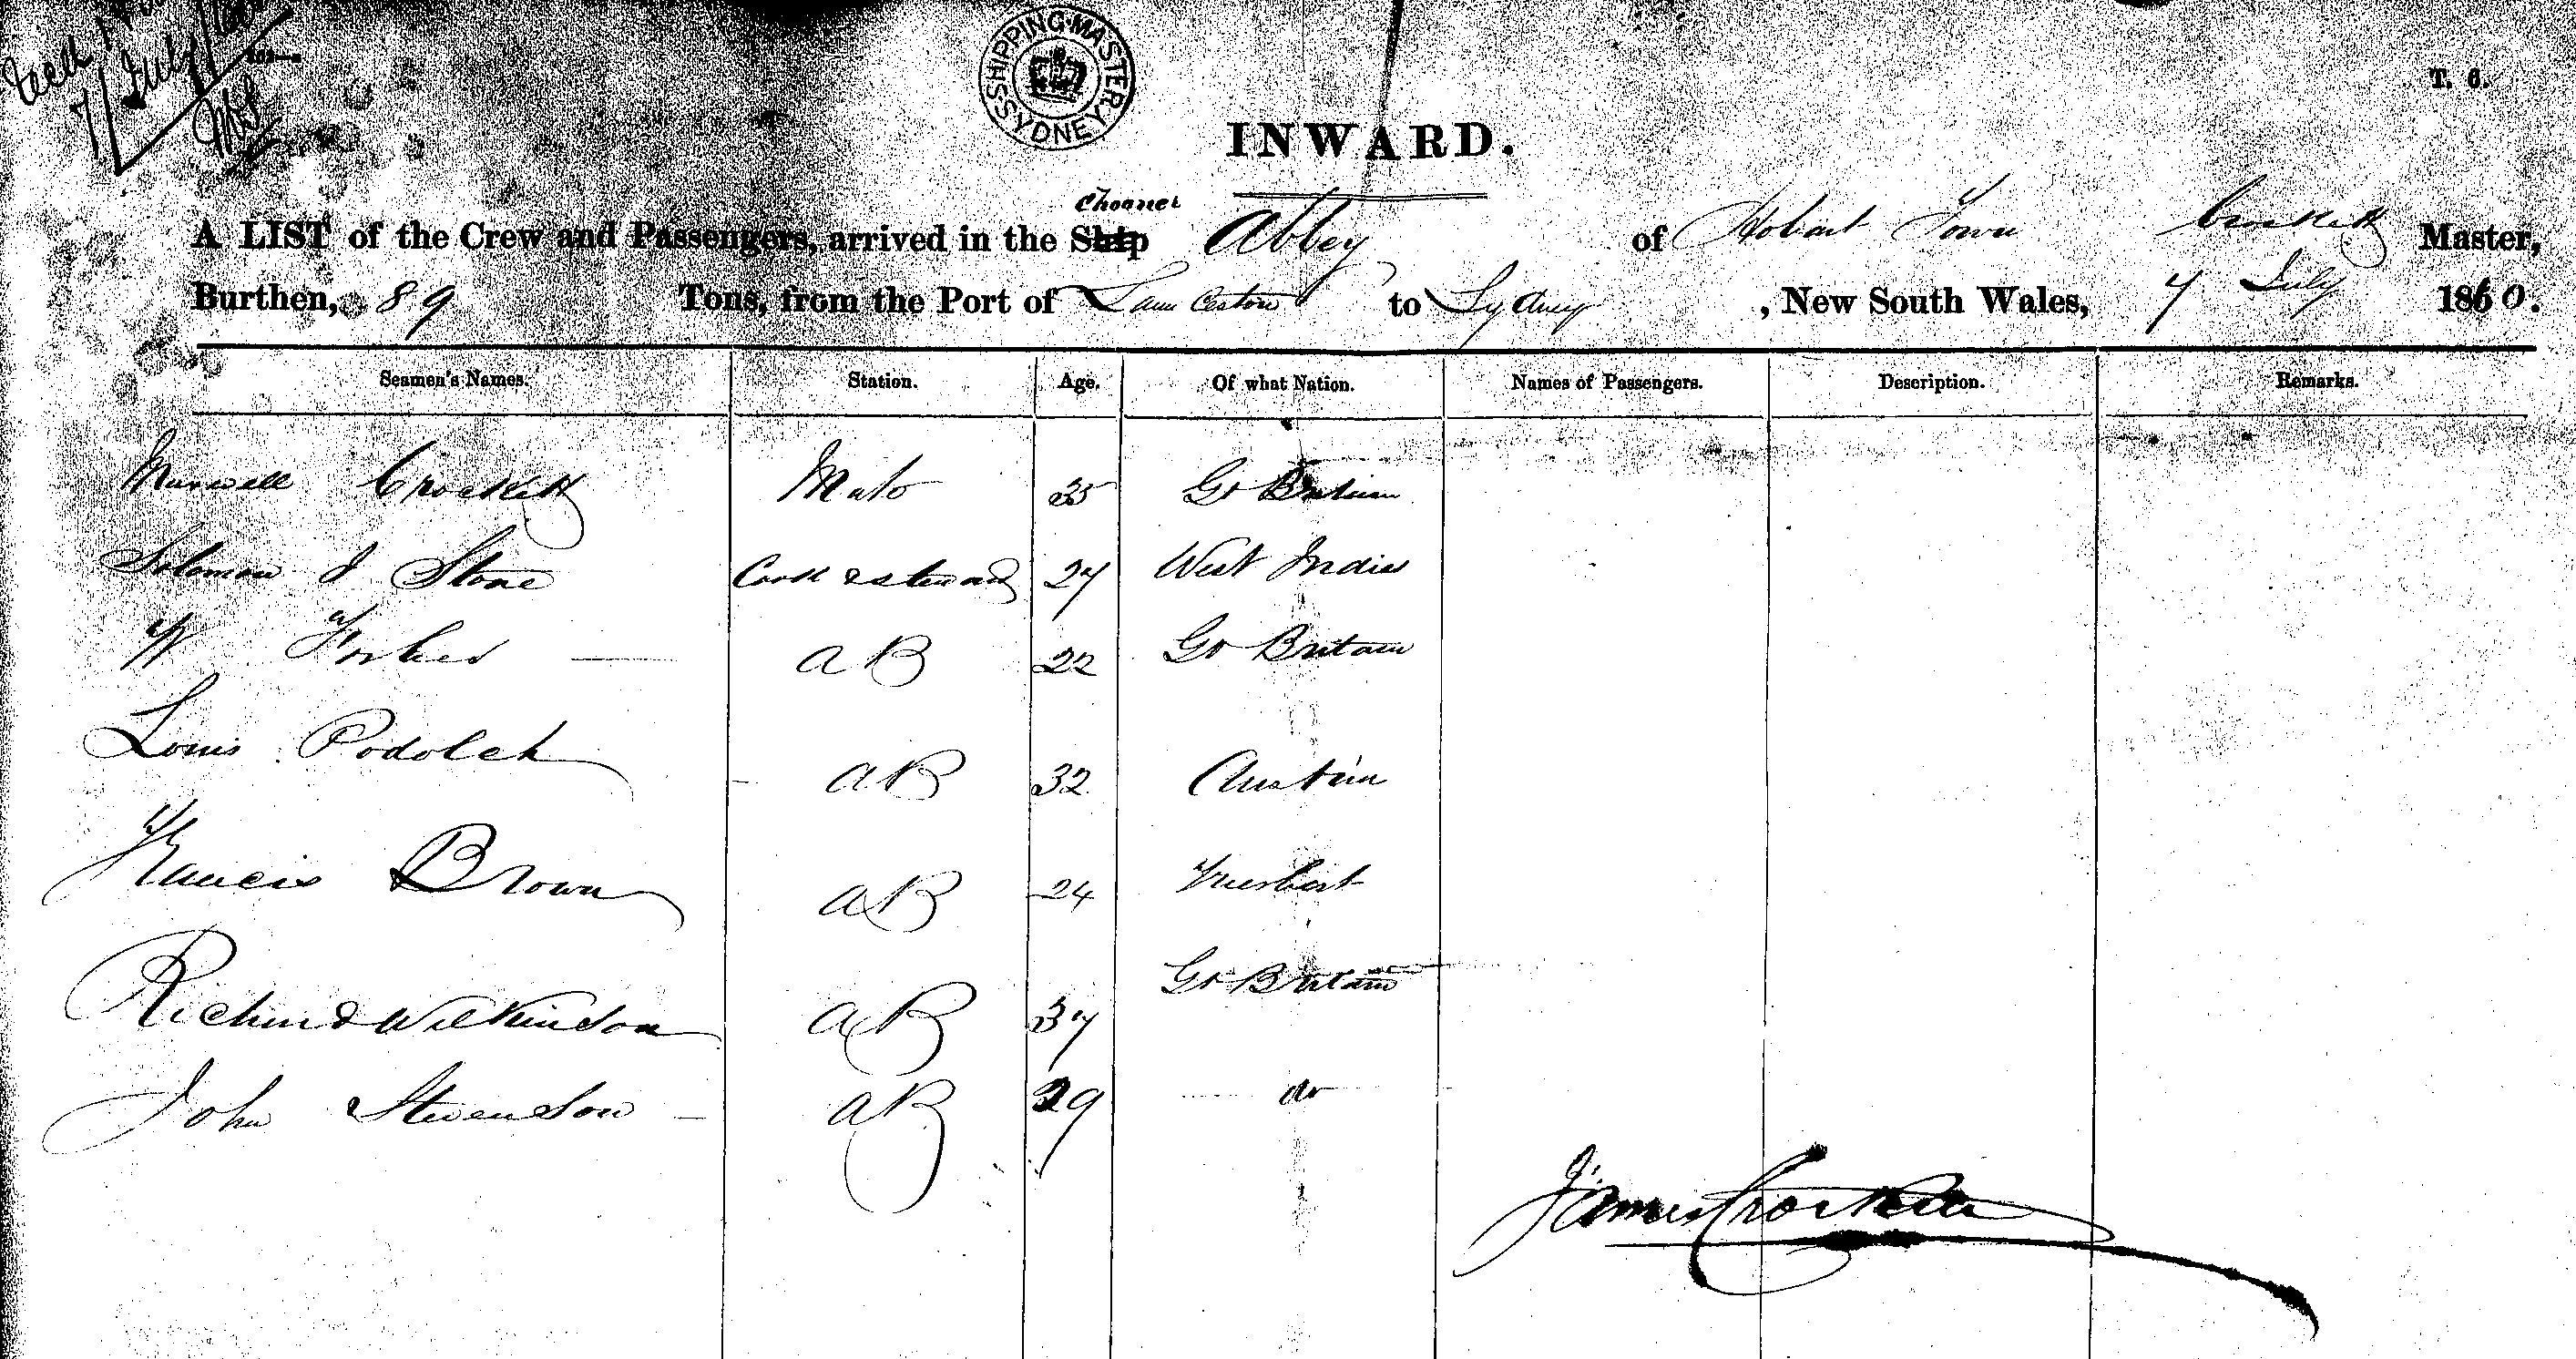 Recd
7 July
SHIPPING MASTER SYDNEY
T. 6.
INWARD.
A LIST of the Crew and Passengers, arrived in the Ship Chooner Abbey of Hobart Town Crockett Master,
Burthen, 89 Tons, from the Port of Launceston to Sydney , New South Wales, 7 July 1860.
Seamen's Names. Station. Age. Of what Nation. Names of Passengers. Description. Remarks.
Maxwell Crockett Mate 35 Gt Britain
Solomon J Stone Cook & steward 27 West Indies
W Forbes AB 22 Gt Britain
Louis Podolch AB 32 Austria
Francis Brown AB 24
Richard Wilkinson AB 37 Gt Britain
John Stevenson AB 29 do
James Crockett